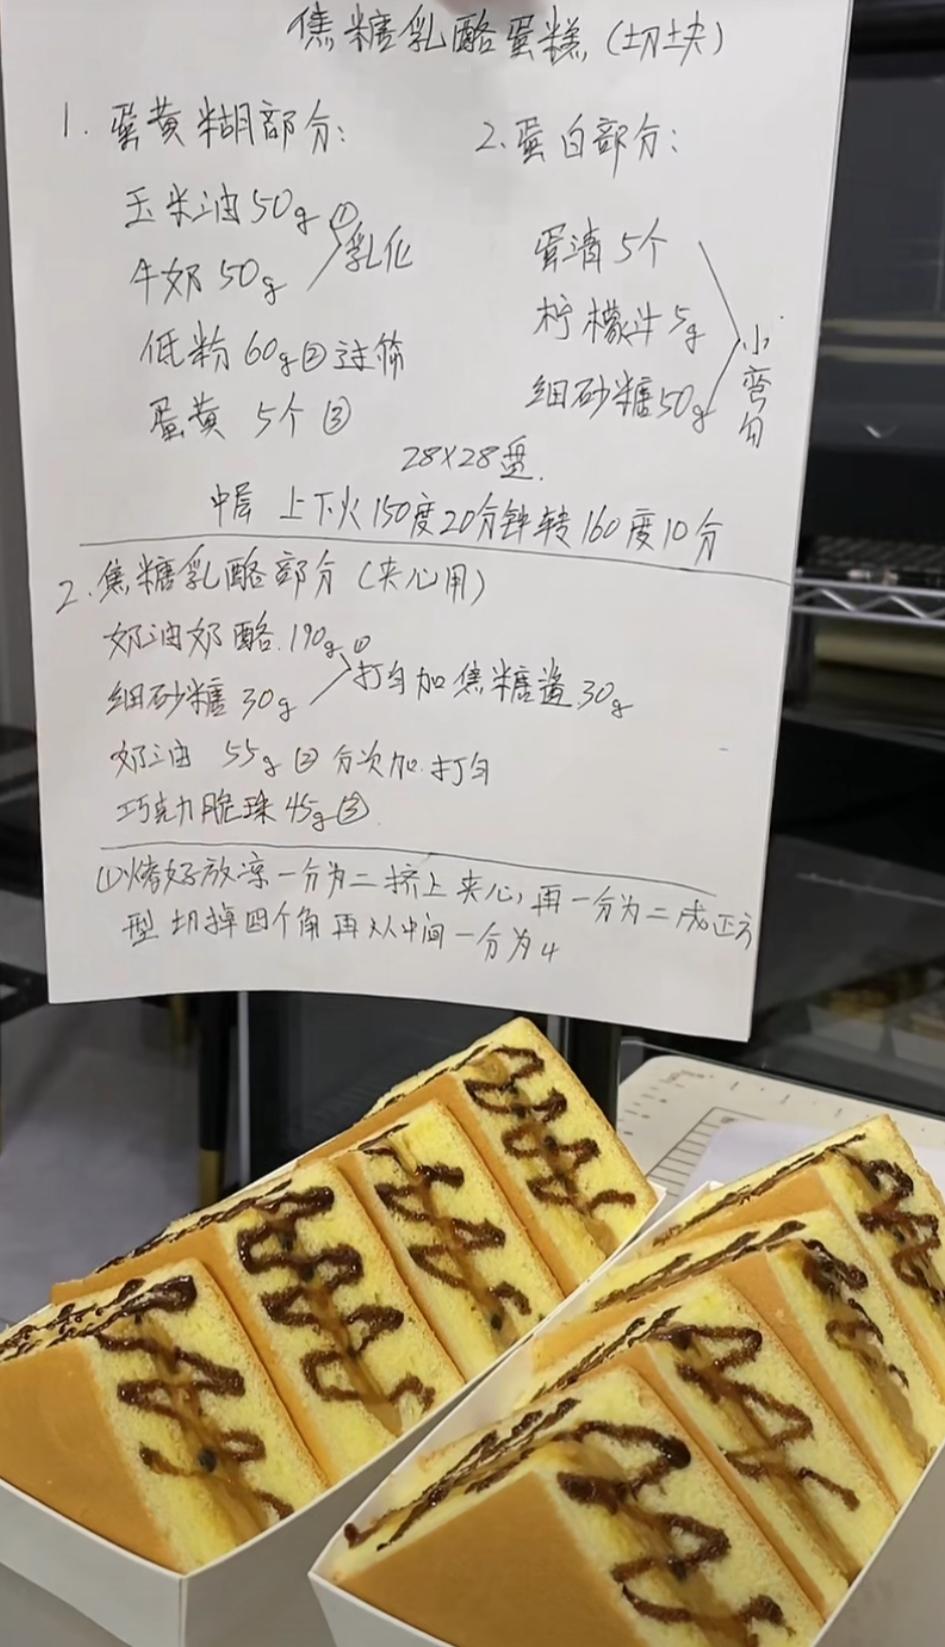 焦糖乳酪蛋糕(切块)
1. 蛋黄糊部分:
玉米油 50g ①
牛奶 50g
乳化
低粉 60g ② 过筛
蛋黄 5个 ③
2. 蛋白部分:
蛋清 5个
柠檬汁 5g
细砂糖 50g
小弯勾
28×28盘.
中层 上下火150度20分钟转160度10分
2. 焦糖乳酪部分(夹心用)
奶油奶酪. 190g ①
细砂糖 30g
打匀加焦糖酱 30g
奶油 55g ② 分次加. 打匀
巧克力脆珠 45g ③
①烤好放凉一分为二挤上夹心,再一分为二成正方
型 切掉四个角再从中间一分为4